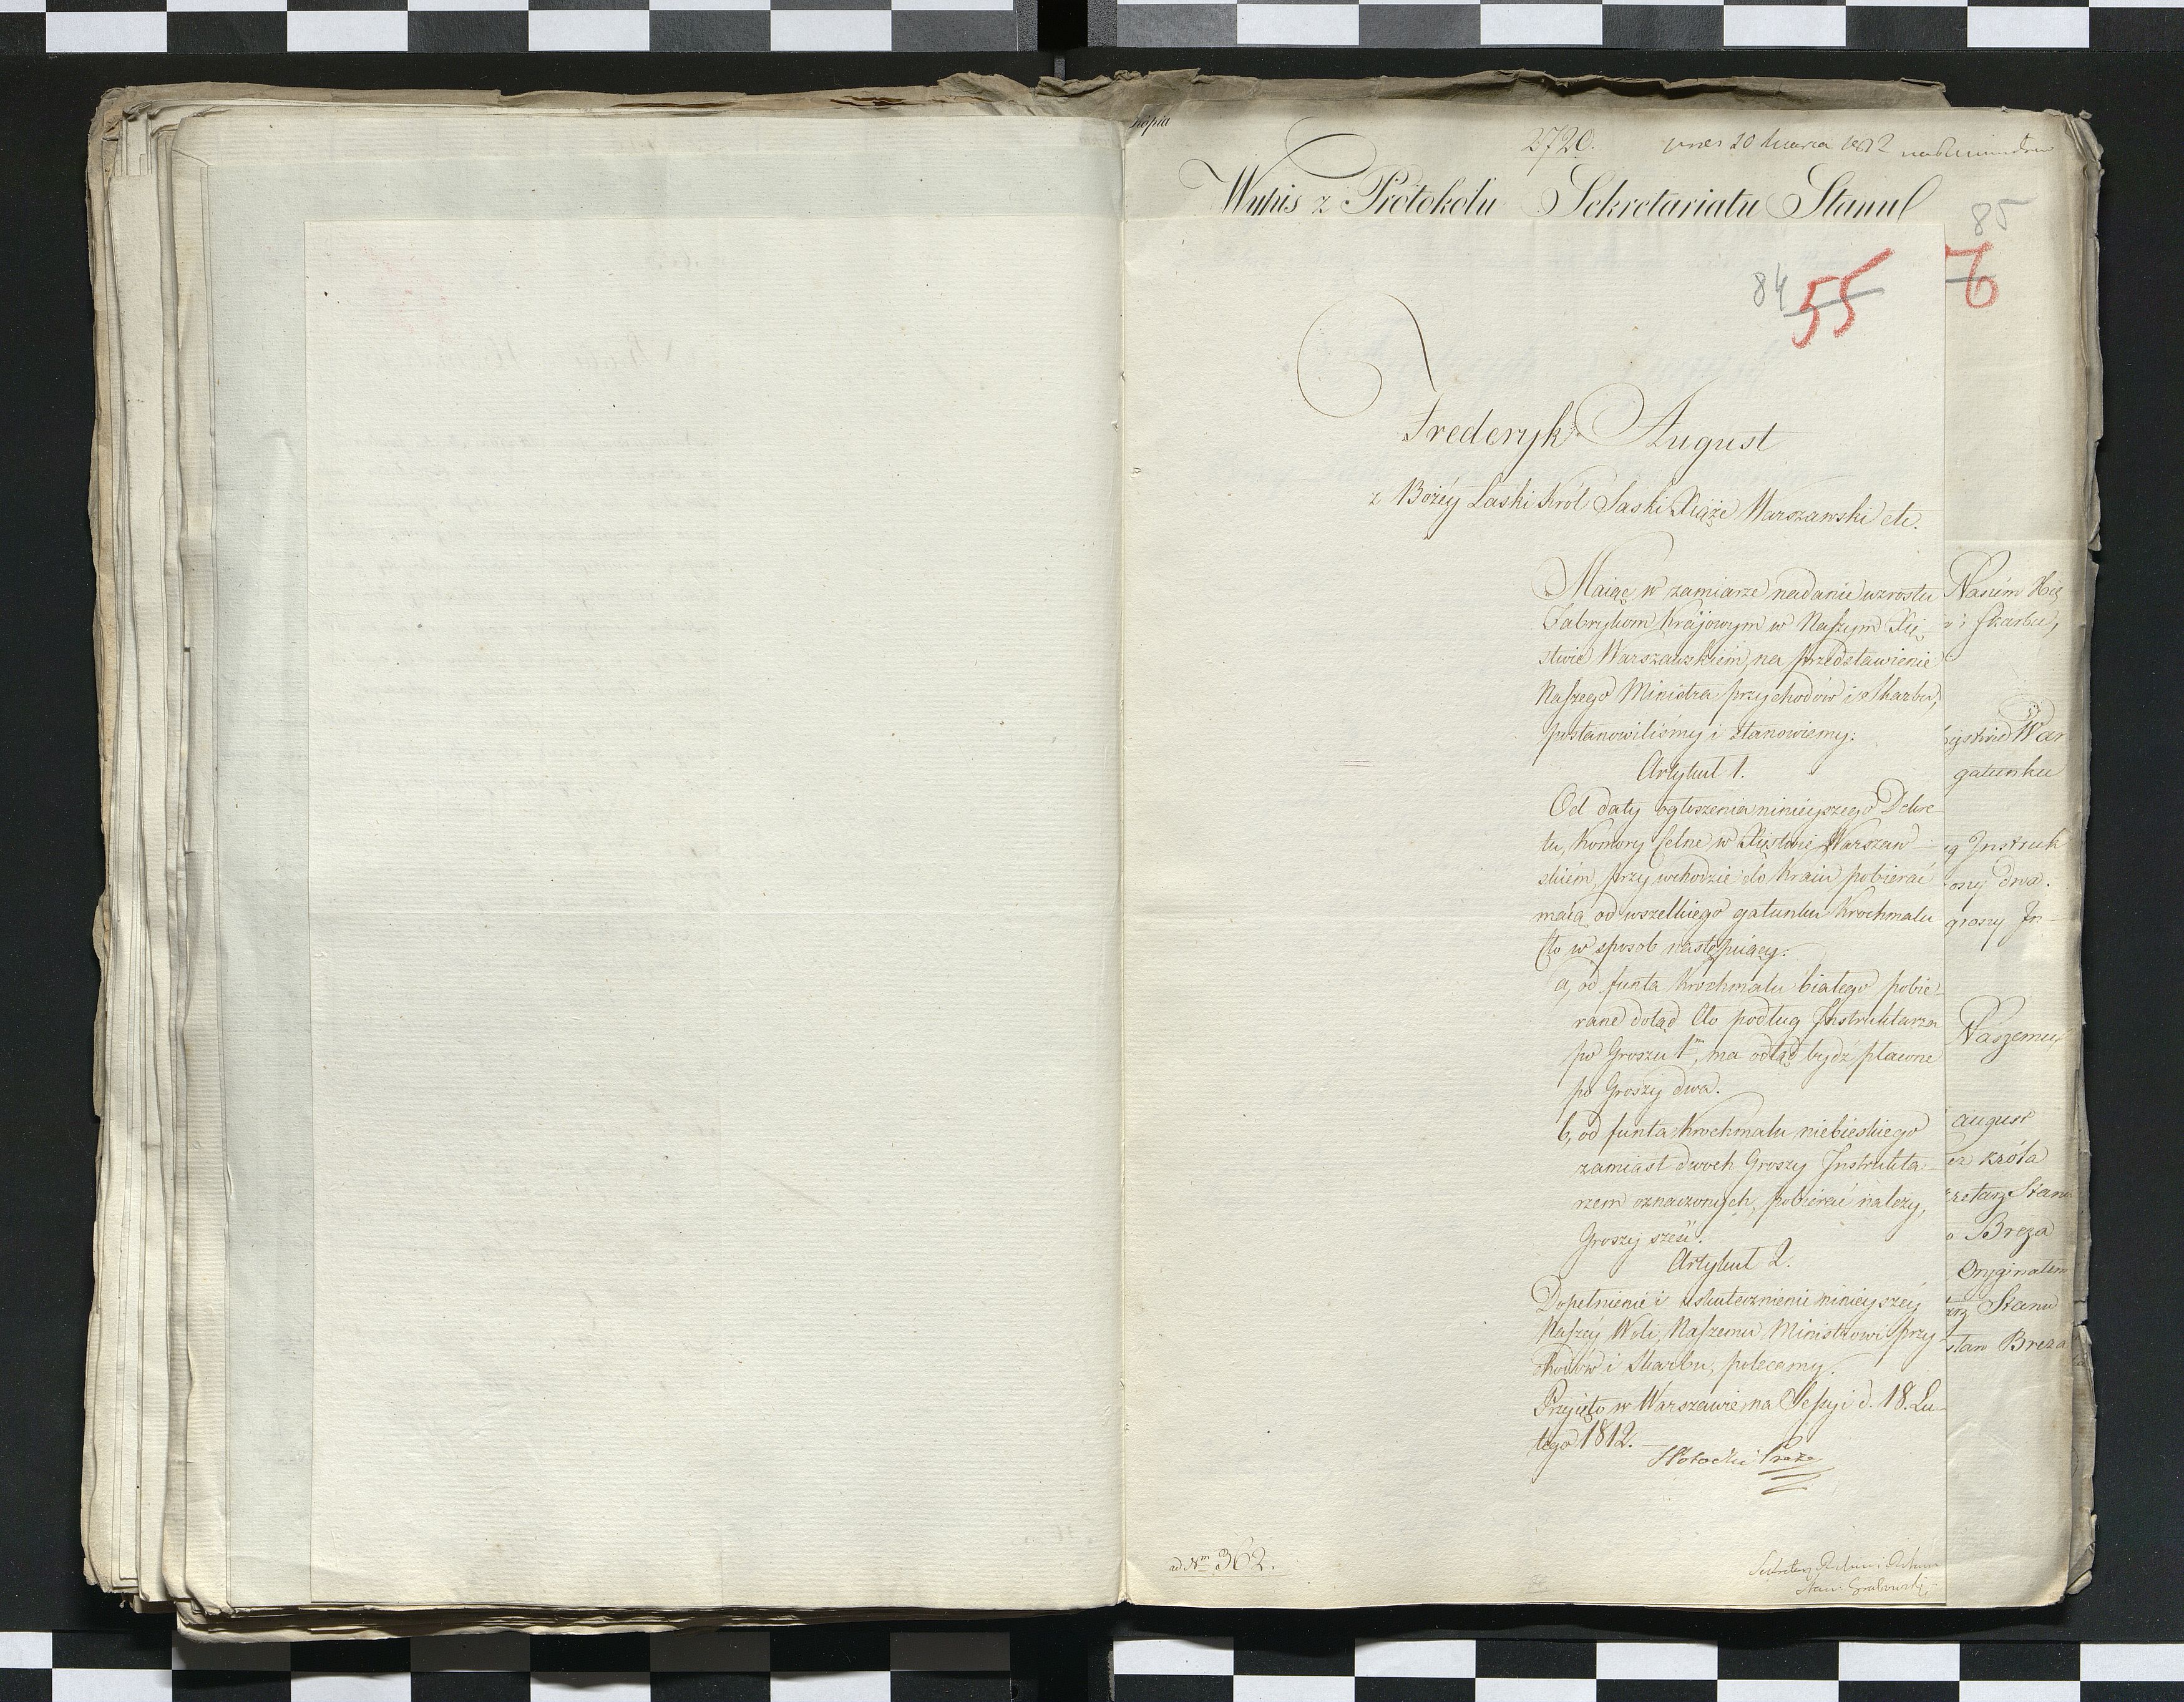 Kopia
2720.
20 Marca 1812
Wypis z Protokołu Sekretariatu Stanu
85
6
84
55
Frederyk August
z Bożéy Łaski Król Saski Xiąże Warszawski etc.
Maiąc w zamiarze nadanie wzrostu
Fabrykom Kraiowym w Naszym Xię-
stwie Warszawskiém, na przedstawienie
Naszego Ministra przychodów i Skarbu,
postanowiliśmy i stanowiemy:
Artykuł 1.
Od daty ogłoszenia ninieyszego Dekre-
tu, Komory Celne w Xięstwie Warszaw-
skiém, przy wchodzie do Kraiu pobierać
maią od wszelkiego gatunku Krochmalu
Cło w sposob następuiący:
a, od funta Krochmalu białego pobie-
rane dotąd Cło podług Instruktarza
po Groszu 1m, ma odtąd bydź płacone
po Groszy dwa.
b, od funta Krochmalu niebieskiego
zamiast dwoch Groszy Instrukta-
rzem oznaczonych, pobierać należy,
Groszy sześć.
Artykuł 2.
Dopełnienie i uskutecznienie ninieyszéy
Naszéy Woli, Naszemu Ministrowi przy-
chodów i Skarbu, polecamy.
Przyięto w Warszawie na Sessyi d. 18. Lu-
tego 1812.
ad Nm 362.
Nasiém Xię
i Skarbu,
Xięstwie War
gatunku
Instruk
dwa.
groszy In-
Naszemu
August
króla
Stanu
Breza
Oryginałem
Stanu
Breza